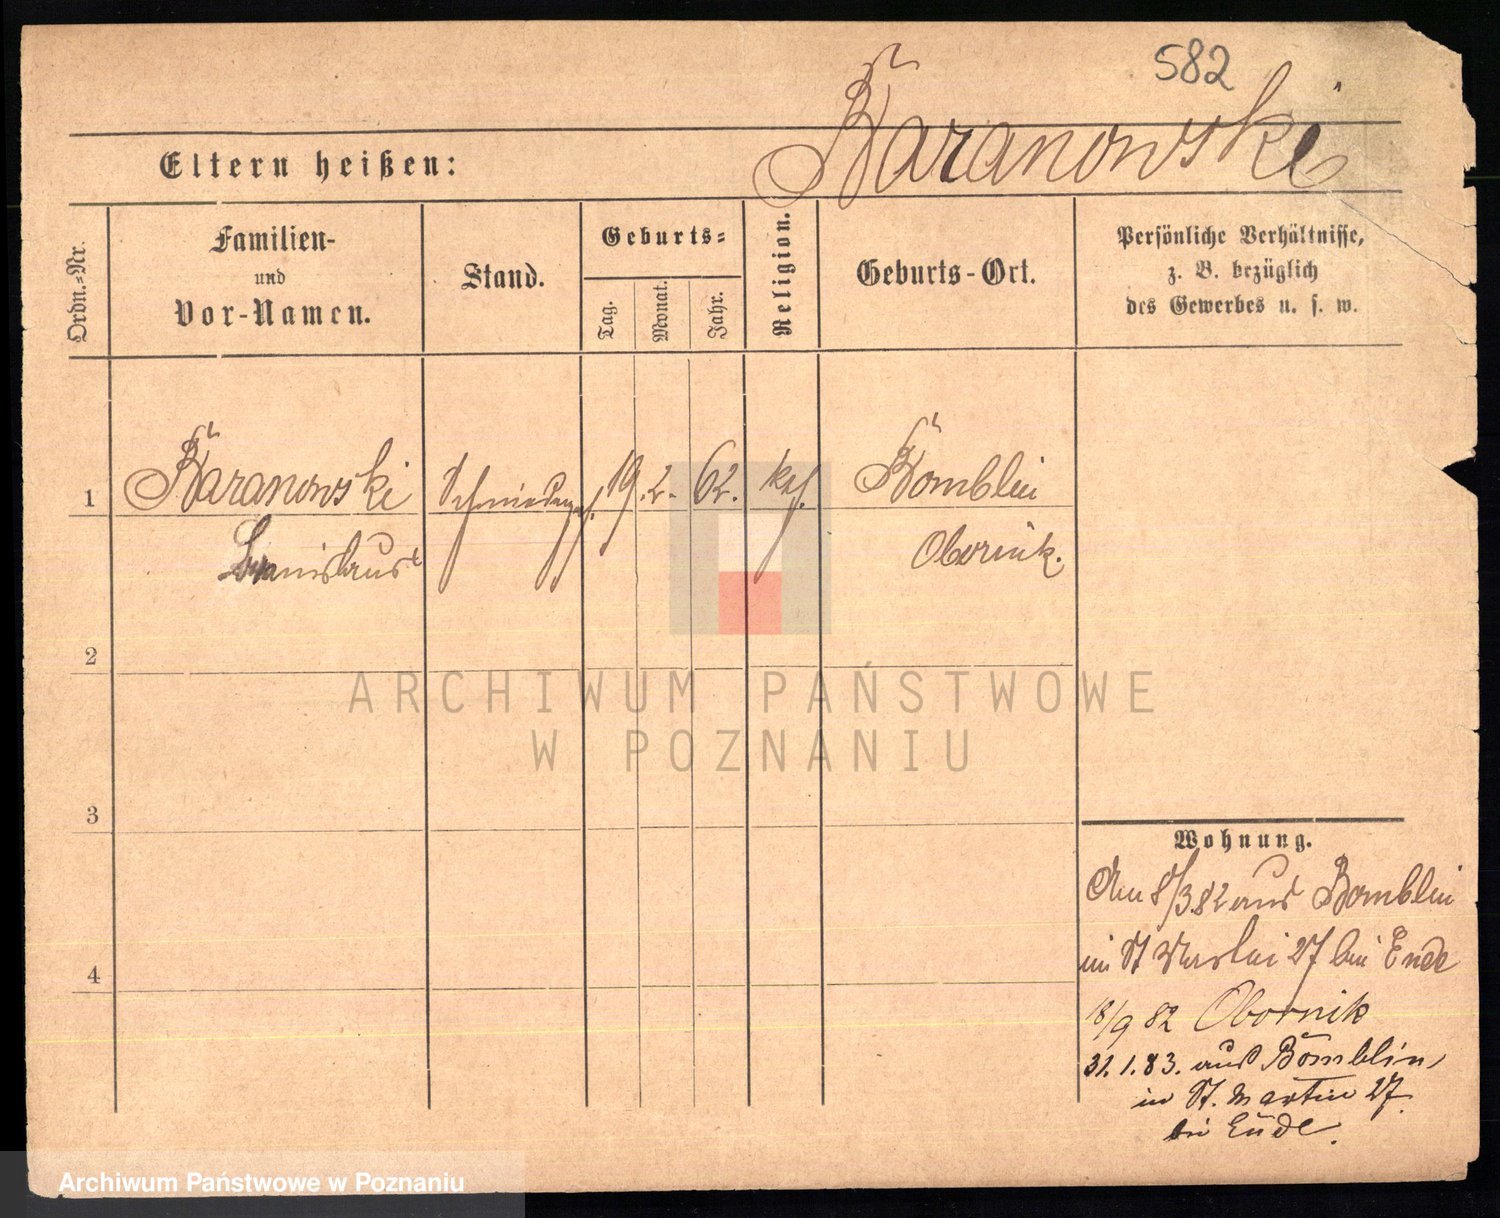 582
Baranowski
Eltern heißen:
Ordn.-Nr.
Familien-
und
Vor-Namen.
Stand.
Geburts-
Tag.
Monat.
Jahr.
Religion.
Geburts-Ort.
Persönliche Verhältnisse,
z. B. bezüglich
des Gewerbes u. s. w.
1 Baranowski Schmiedeges. 19. 2. 62. kath. Bomblin
Stanislaus Obornik.
2
3
4
Wohnung.
Am 8/3 82 aus Bomblin
in St Martin 27 bei Ende
18/9 82 Obornik
31.1.83. aus Bomblin,
in St. Martin 27.
bei Ende.
ARCHIWUM PAŃSTWOWE
W POZNANIU
Archiwum Państwowe w Poznaniu